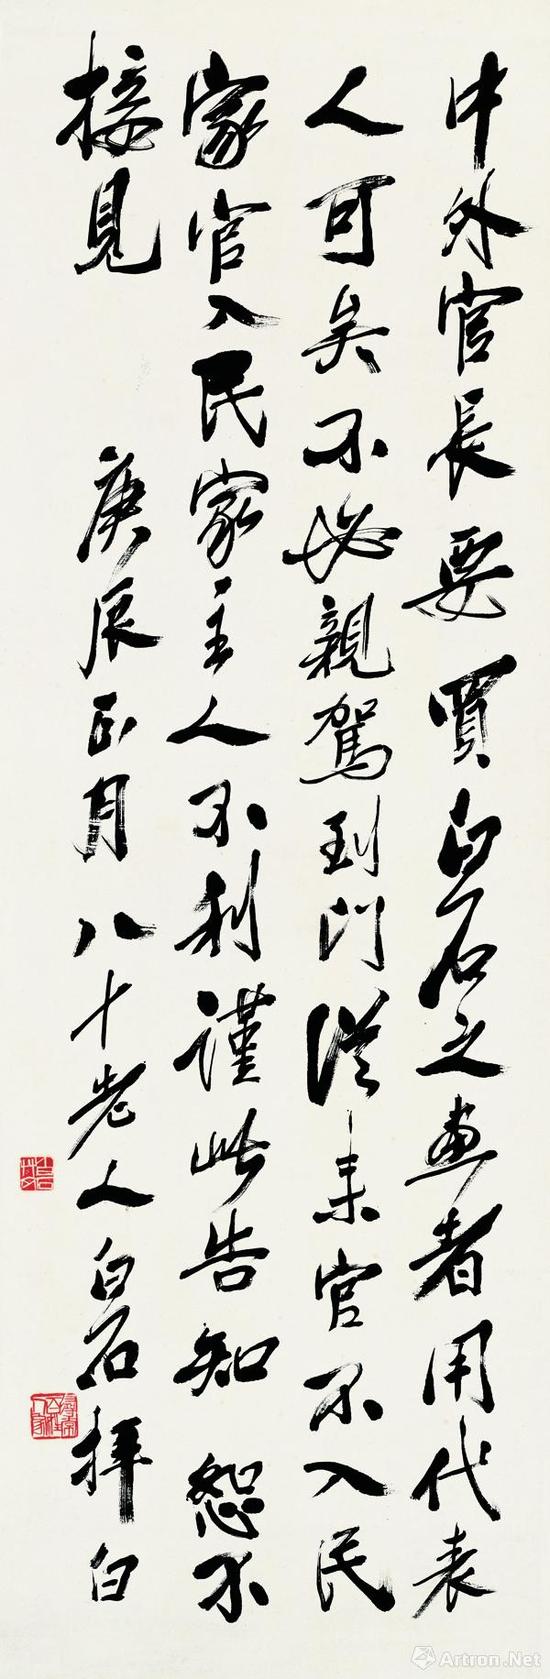 中外官長要買白石之畫者用代表
人可矣不必親駕到門從來官不入民
家官入民家主人不利謹此告知恕不
接見
庚辰正月八十老人白石拜白
Artron.Net